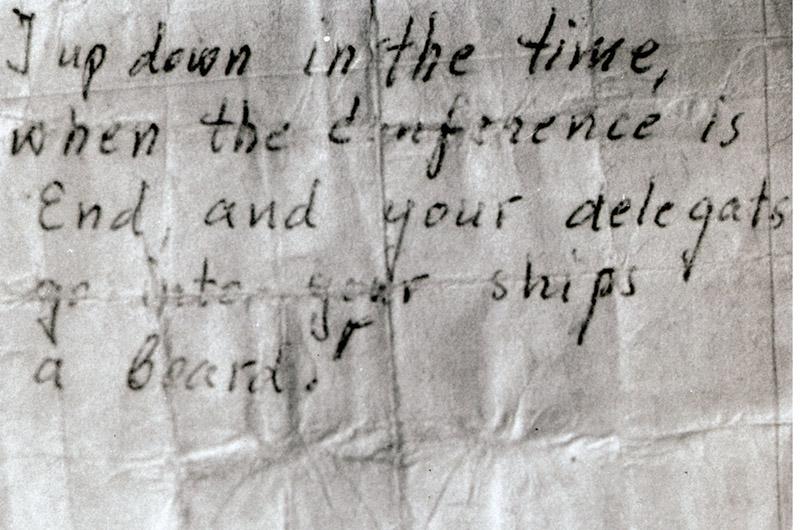 I up down in the time,
when the conference is
End, and your delegats
go into your ships
a board.